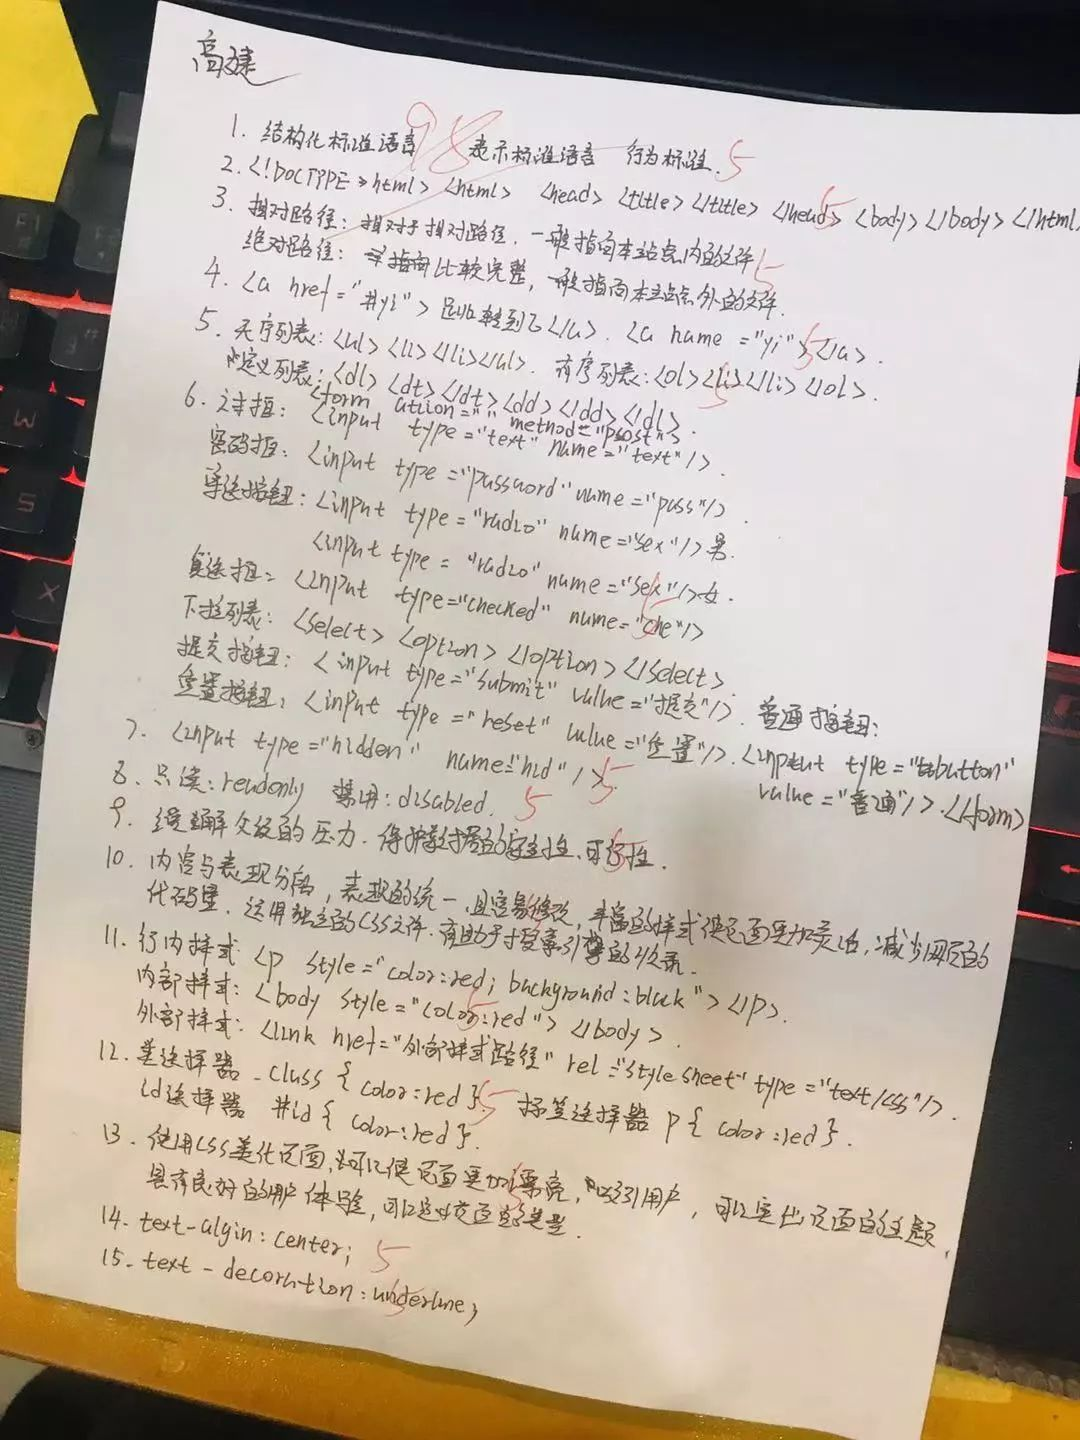 高建
98
1. 结构化标准语言 表示标准语言 行为标准. 5
2. <!DOCTYPE html> <html> <head> <title></title> </head> <body></body></html>
3. 相对路径: 相对于相对路径, 一般指向本站点内的文件 5
绝对路径: 指向比较完整, 一般指向本站点外的文件.
4. <a href="#yi">跳转到乙</a>. <a name="yi"></a>. 5
5. 无序列表: <ul><li></li></ul>. 有序列表: <ol><li></li><ol>. 5
定义列表: <dl><dt></dt><dd></dd></dl>.
<form action="" method="post">
6. 文本框: <input type="text" name="text"/>.
密码框: <input type="password" name="pass"/>.
单选按钮: <input type="radio" name="sex"/>男.
<input type="radio" name="sex"/>女.
复选框: <input type="checked" name="che"/>
下拉列表: <select><option></option></select>.
提交按钮: <input type="submit" value="提交"/>. 普通按钮:
重置按钮: <input type="reset" value="重置"/>. <input type="button"
value="普通"/>.</form>
7. <input type="hidden" name="hid"/>. 5
8. 只读: readonly 禁用: disabled. 5
9. 缓解 的压力. 保护数据的安全性、可行性. 5
10. 内容与表现分离, 表现的统一, 且容易修改, 丰富的样式使页面更加灵活, 减少网页的
代码量. 运用独立的CSS文件. 有助于搜索引擎的收录.
11. 行内样式 <p style="color:red; background:black"></p>.
内部样式: <body style="color:red"></body>. 5
外部样式: <link href="外部样式路径" rel="stylesheet" type="text/css"/>.
12. 类选择器 .class{color:red}. 5 标签选择器 p{color:red}.
id选择器 #id{color:red}.
13. 使用CSS美化页面, 可以使页面更加漂亮, 吸引用户, 可以突出页面的主题,
具有良好的用户体验, 可以
14. text-algin: center; 5
15. text-decoration: underline; 5